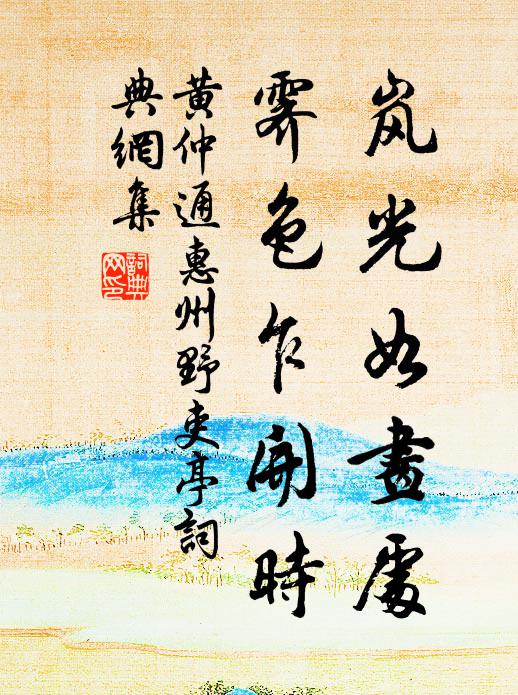 岚光如畫處
霽色乍開時
黃仲通惠州野吏亭詞
典網集
詞典
网印